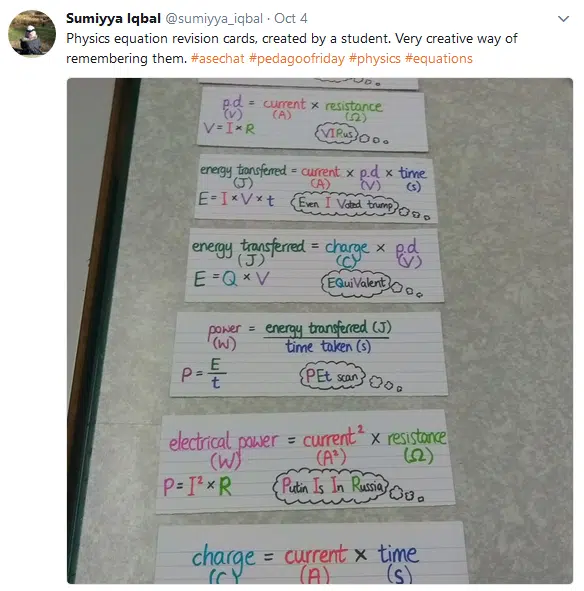 Sumiyya Iqbal @sumiyya_iqbal · Oct 4
Physics equation revision cards, created by a student. Very creative way of
remembering them. #asechat #pedagoofriday #physics #equations
p.d = current × resistance
(V) (A) (Ω)
V = I × R
VIRus
energy transferred = current × p.d × time
(J) (A) (V) (s)
E = I × V × t
Even I Voted trump
energy transferred = charge × p.d
(J) (C) (V)
E = Q × V
EQuiValent
power = energy transferred (J)
(W) time taken (s)
P = E
t
PEt scan
electrical power = current² × resistance
(W) (A²) (Ω)
P = I² × R
Putin Is In Russia
charge = current × time
(C) (A) (s)